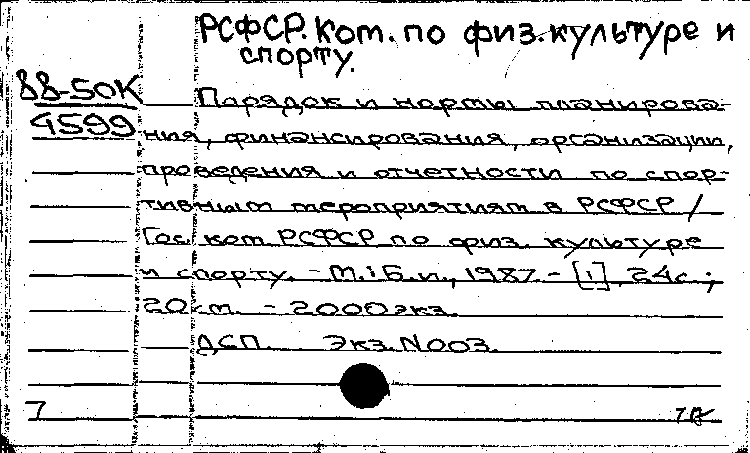 РСФСР. Ком. по физ. культуре и
спорту.
88-50К
4599
Порядок и нормы планирова-
ния, финансирования, организации,
проведения и отчетности по спор-
тивным мероприятиям в РСФСР /
Гос ком. РСФСР по физ. культуре
и спорту. - М.: Б.и., 1987. - [1], 24с.;
20 см. - 2000 экз.
ДСП. Экз. N003.
7